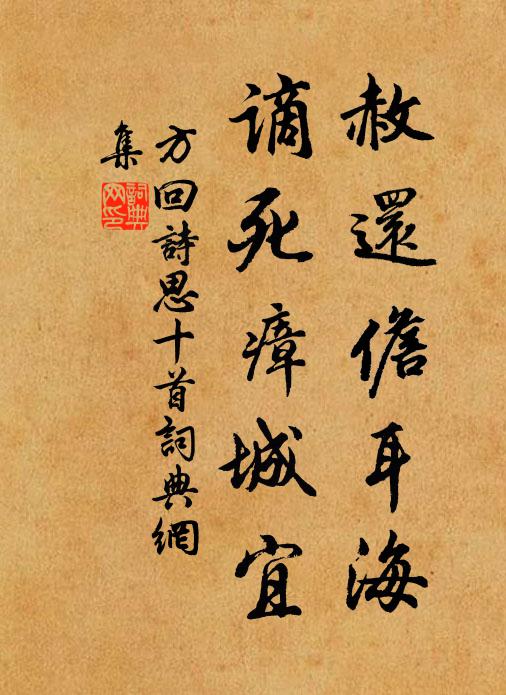 赦還儋耳海
謫死瘴城宜
方回詩思十首詞典網
集
詞典網印